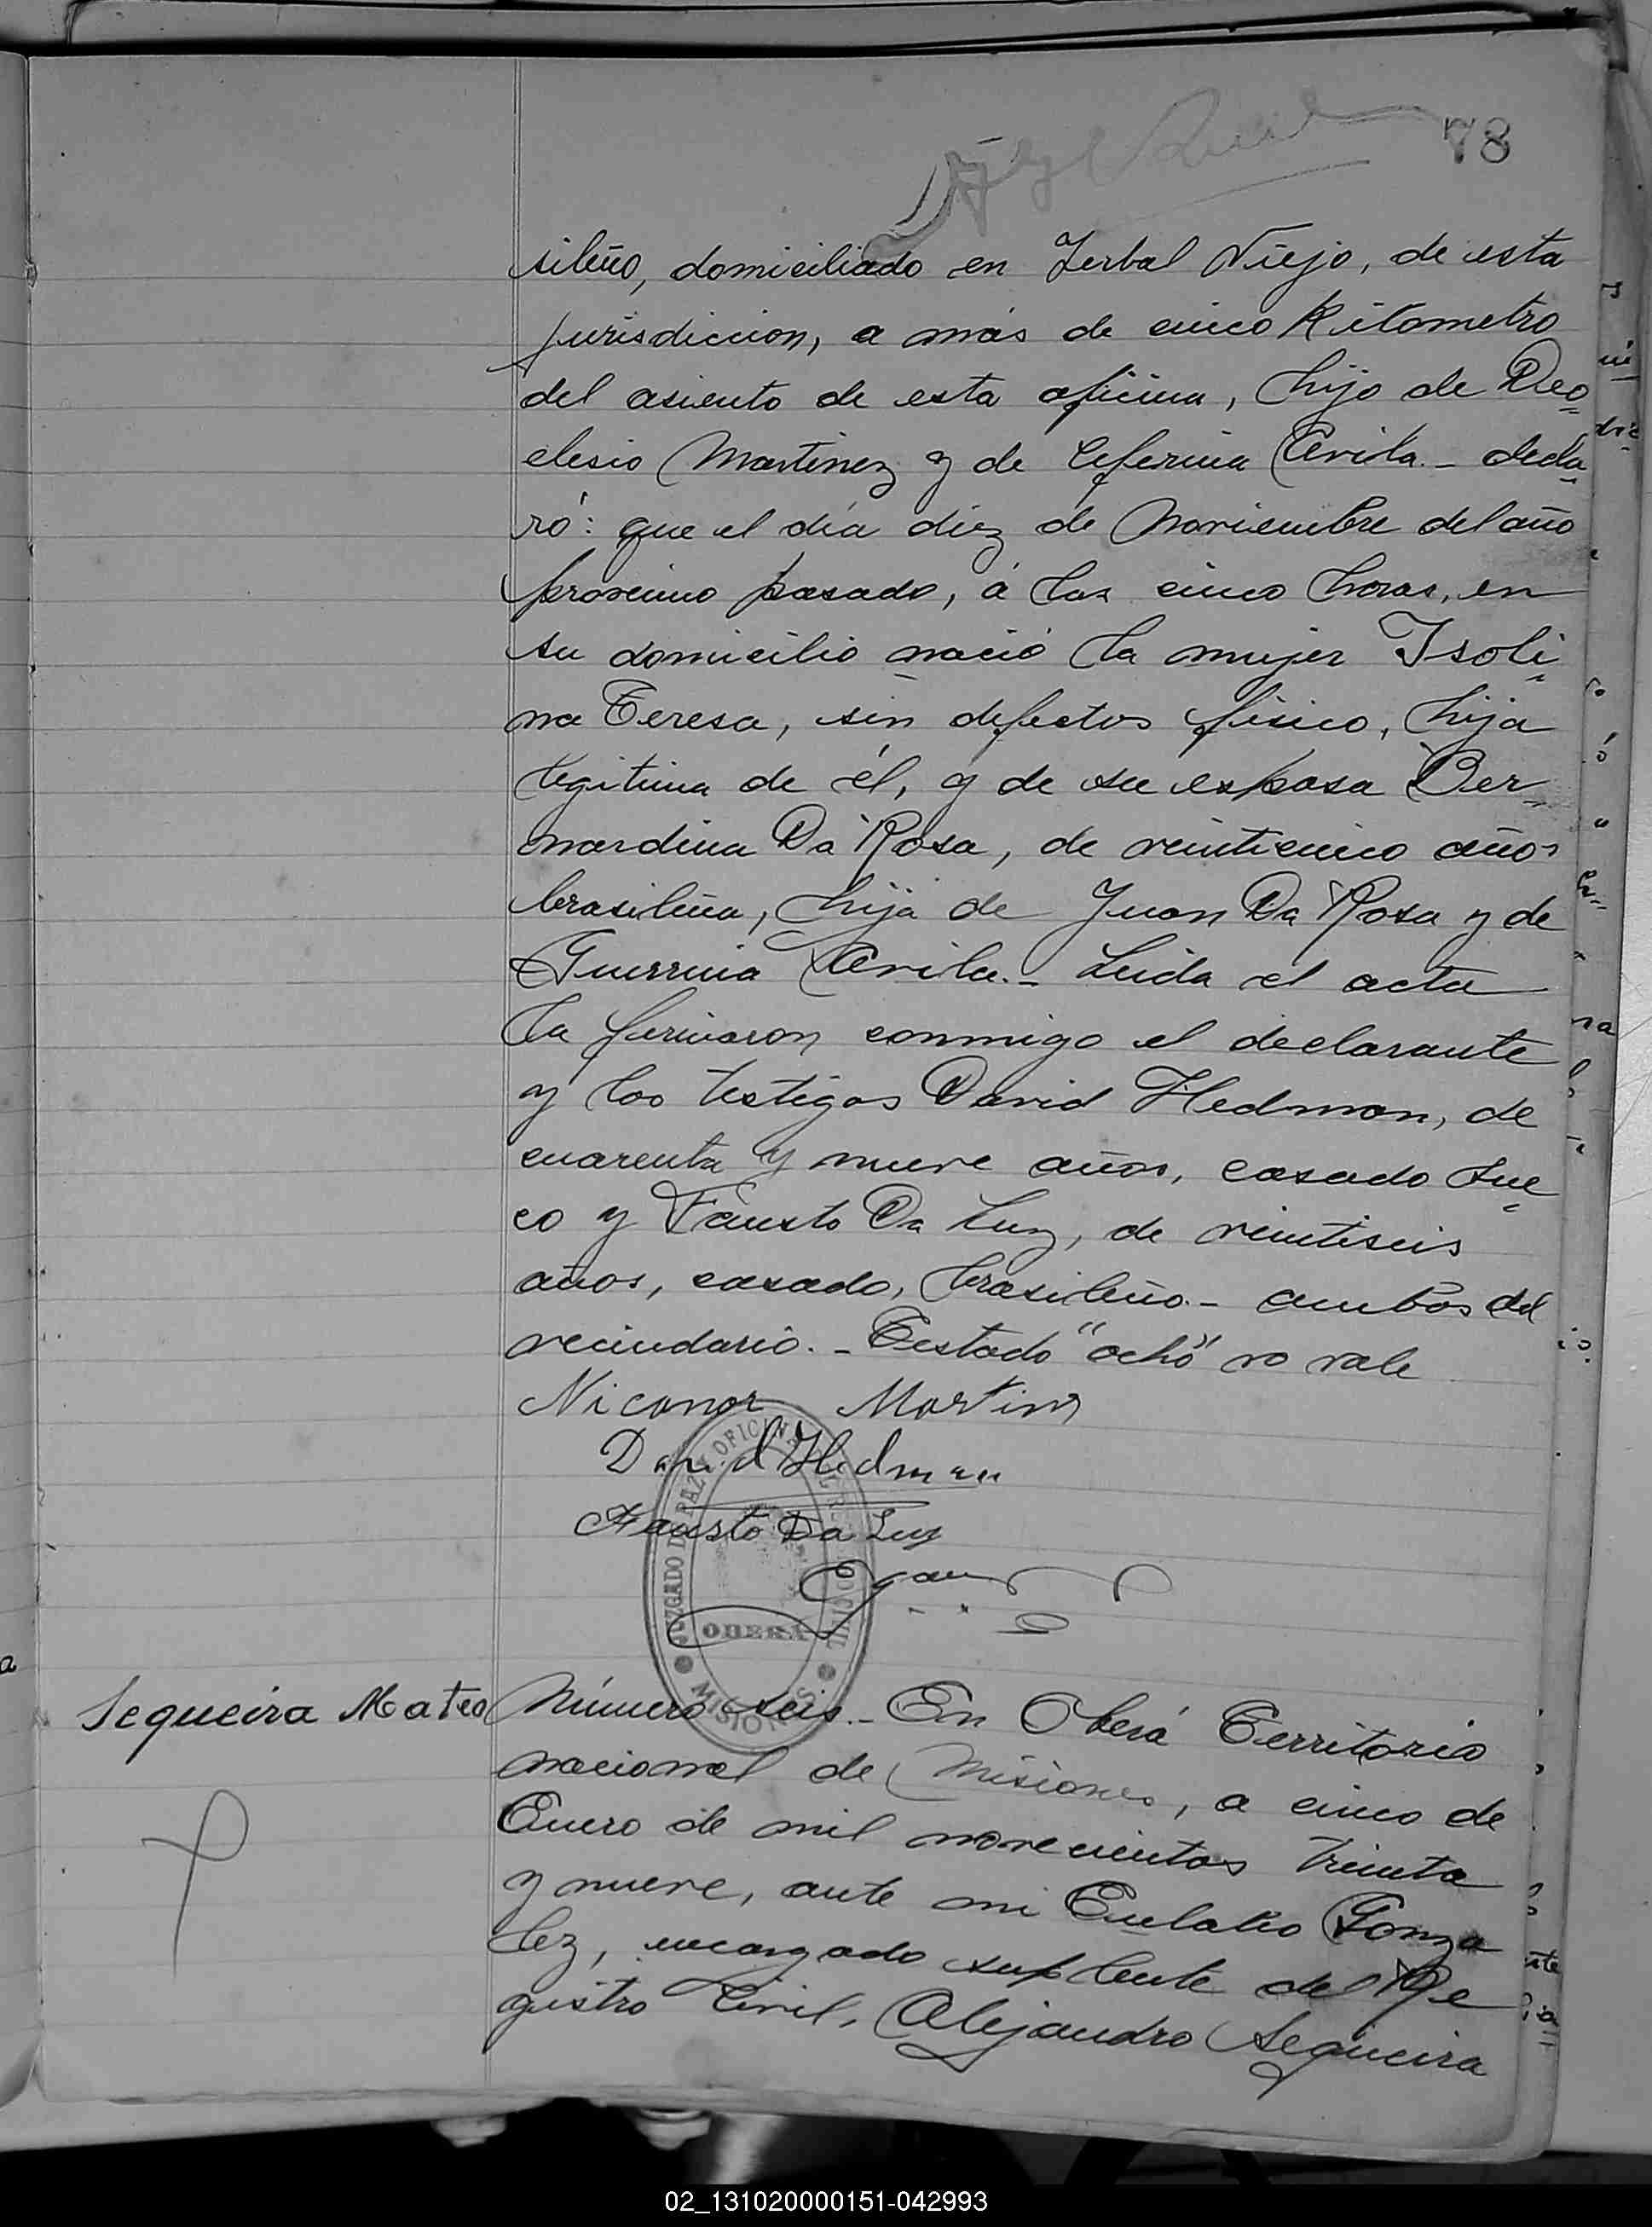 78
sileño, domiciliado en Yerbal Viejo, de esta
jurisdiccion, a más de cinco Kilometro
del asiento de esta oficina, hijo de Deo
clesio Martinez y de Ceferina Avila.- decla
ró: que el día diez de Noviembre del año
proximo pasado, á las cinco horas, en
su domicilio nació la mujer Isoli
na Teresa, sin defectos fisico, hija
legitima de él, y de su esposa Ber
nardina Da Rosa, de veinticinco años
brasileña, hija de Juan Da Rosa y de
Avila.- Leida el acta
la firmaron conmigo el declarante
y los testigos David Hedman, de
cuarenta y nueve años, casado sue
co y Fausto Da Luz, de veintiseis
años, casado, brasileño.- ambos del
vecindario.- Testado "ocho" no vale
Nicanor Martins
David Hedman
Fausto Da Luz
JUZGADO DE PAZ Y OFICINA DEL REGISTRO CIVIL
OBERÁ
MISIONES
Sequeira Mateo
Número seis.- En Oberá Territorio
nacional de Misiones, a cinco de
Enero de mil novecientos treinta
y nueve, ante mi Eulalio Gonza
lez, encargado suplente del Re
gistro Civil, Alejandro Sequeira
02_131020000151-042993